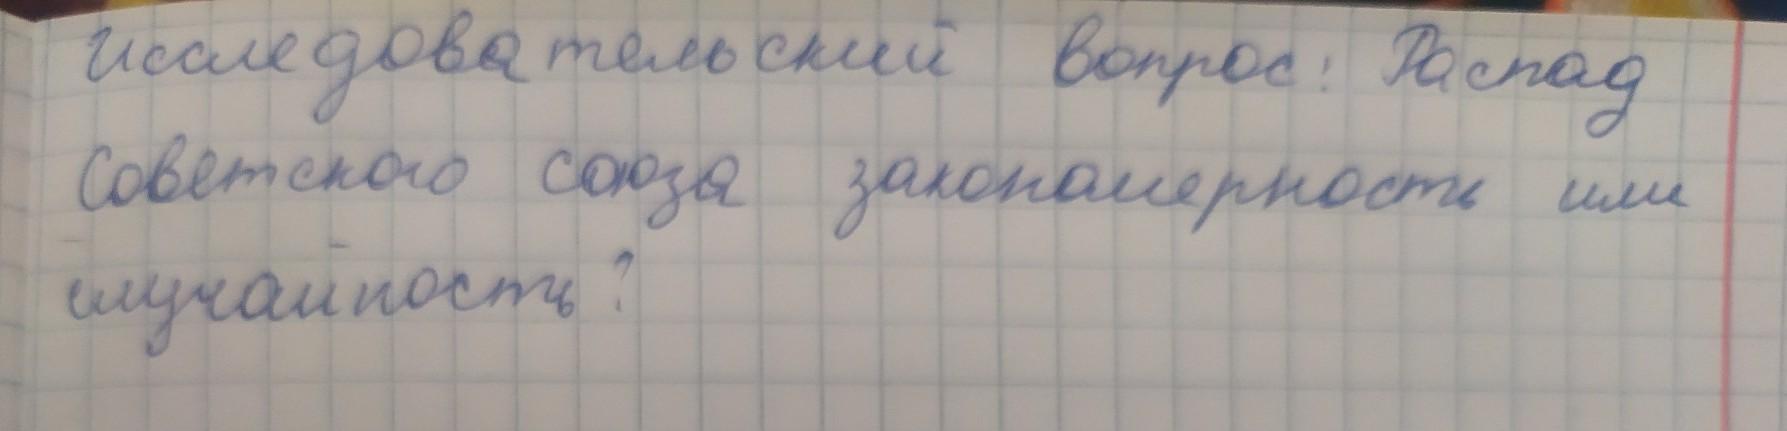 Исследовательский вопрос: Распад
Советского союза закономерность или
случайность?